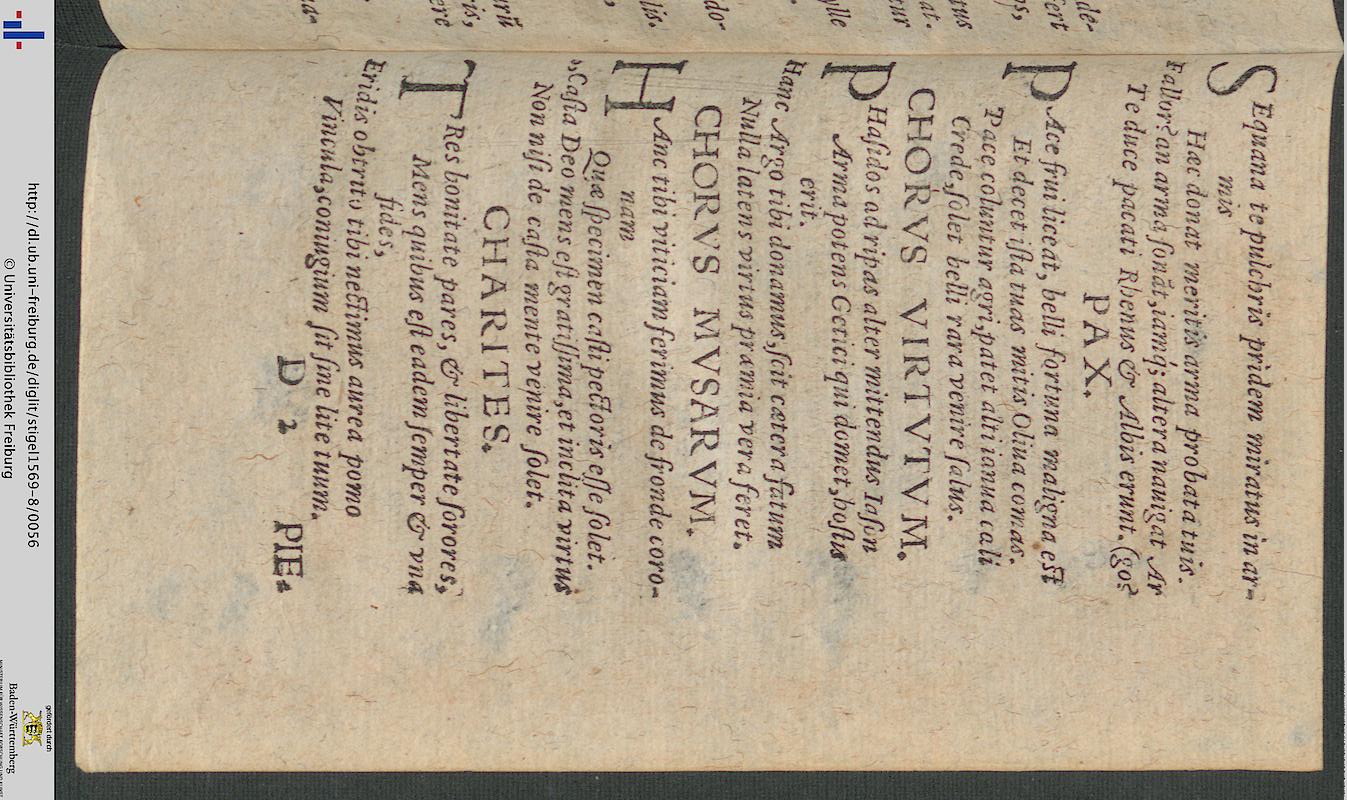 SEquana te pulchris pridem miratus in ar-
mis
Hæc donat meritis arma probata tuis.
Fallor? an arma sonāt, iamq́; altera nauigat Ar
Te duce pacati Rhenus & Albis erunt. (go?
PAX.
PAce frui liceat, belli fortuna maligna est
Et decet ista tuas mitis Oliua comas.
Pace coluntur agri, patet alti ianua cæli
Crede, solet belli rara venire salus.
CHORVS VIRTVTVM.
PHasidos ad ripas alter mittendus Iason
Arma potens Getici qui domet, hostis
erit.
Hanc Argo tibi donamus, scit cætera fatum
Nulla latens virtus præmia vera feret.
CHORVS MVSARVM.
HAnc tibi viticiam ferimus de fronde coro-
nam
Quæ specimen casti pectoris esse solet.
Casta Deo mens est gratissima, et inclita virtus
Non nisi de casta mente venire solet.
CHARITES.
TRes bonitate pares, & libertate sorores,
Mens quibus est eadem semper & vna
fides,
Eridis obtritæ tibi nectimus aurea pomo
Vincula, coniugium sit sine lite tuum.
D 2 PIE.
de-
fert
ps,
tus
at.
tur
ylle
do-
lis.
urū
ris,
ere
us-
http://dl.ub.uni-freiburg.de/diglit/stigel1569-8/0056
© Universitätsbibliothek Freiburg
gefördert durch
Baden-Württemberg